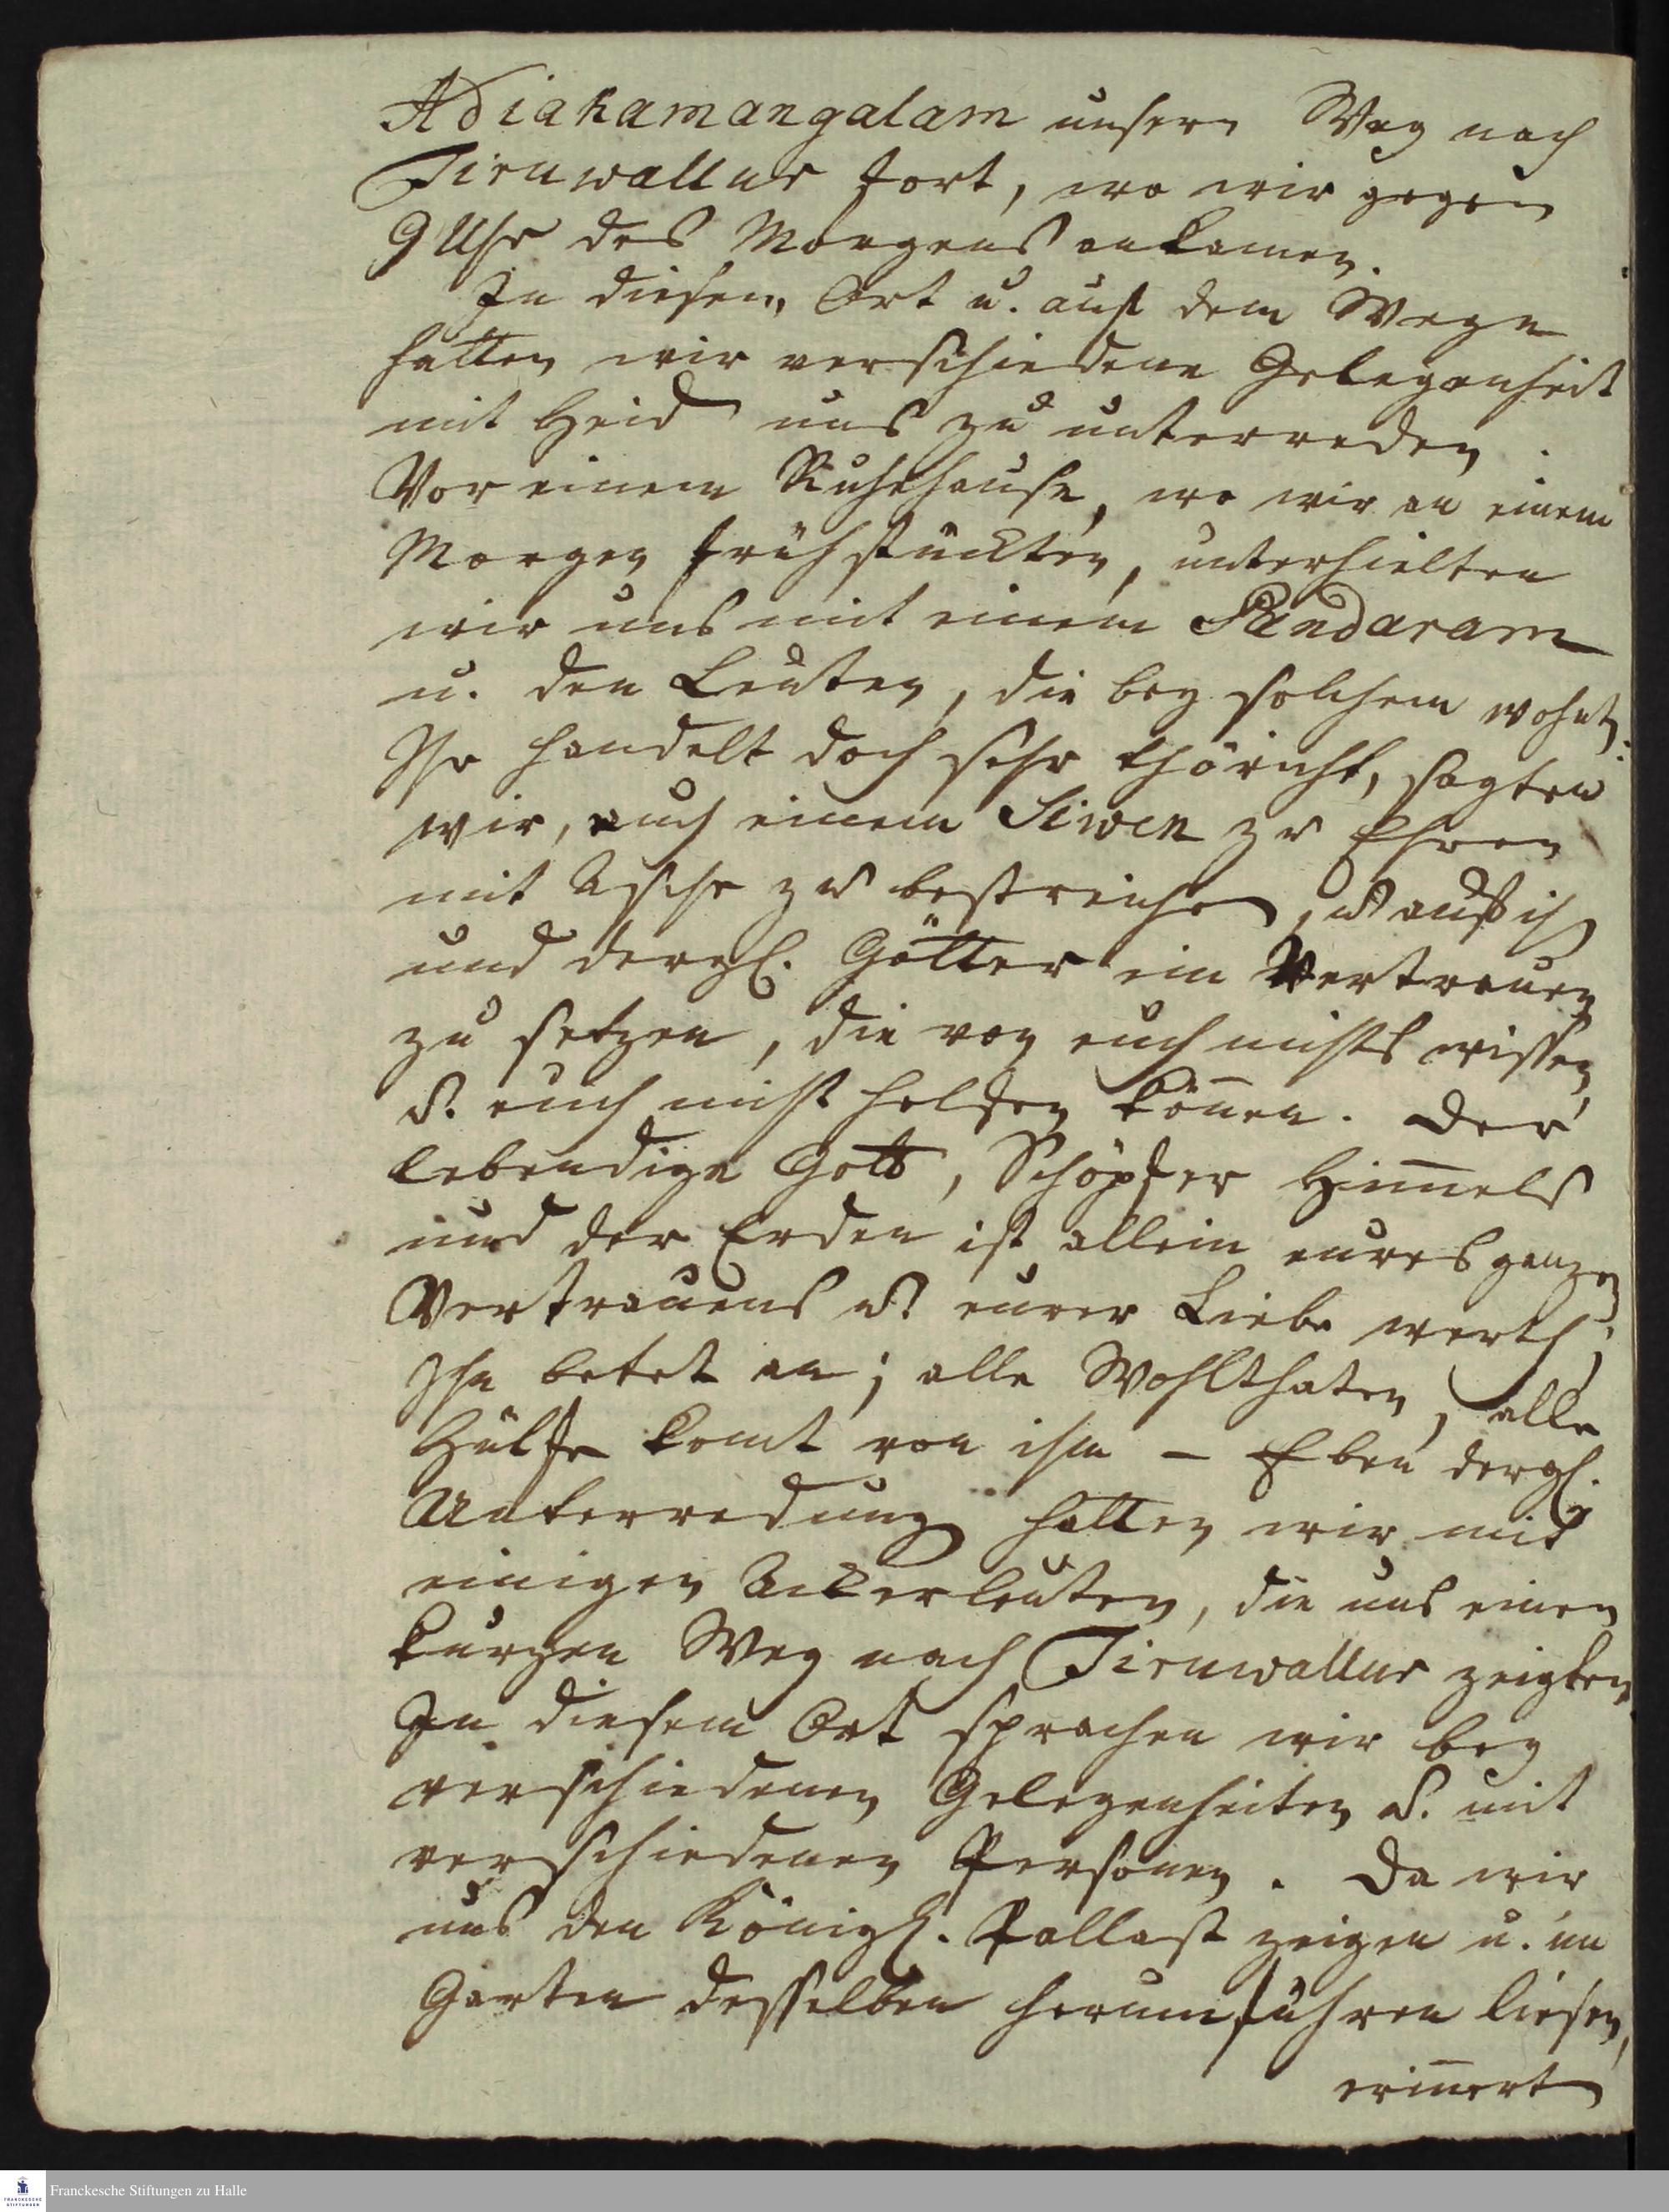 Adiakamangalam unsern Weg nach
Tiruwallur fort, wo wir gegen
9 Uhr des Morgens ankamen.
In diesem Ort u. auf dem Wege
hatten wir verschiedene Gelegenheit
mit Heid uns zu unterreden.
Vor einem Ruhehause, wo wir an einem
Morgen frühstückten, unterhielten
wir uns mit einem Pandaram
u. den Leuten, die bey solchem wohnt.
Ihr handelt doch sehr thöricht, sagten
wir, euch einem Siwen zu Ehren
mit Asche zu bestreichen, u. auf ihn
und dergl. Götter ein Vertrauen
zu setzen, die von euch nichts wissen,
u. euch nicht helfen können. Der
lebendige Gott, Schöpfer Him̄els
und der Erden ist allein eures ganzen
Vertrauens u. eurer Liebe werth;
Ihn betet an; alle Wohlthaten, alle
Hülfe komt von ihm – Eben dergl.
Unterredung hatten wir mit
einigen Ackerleuten, die uns einen
kurzen Weg nach Tiruwallur zeigten.
In diesem Ort sprachen wir bey
verschiedenen Gelegenheiten u. mit
verschiedenen Personen. Da wir
uns den Königl. Pallast zeigen u. im
Garten desselben herumführen liesen,
erin̄ert
Franckesche Stiftungen zu Halle
FRANCKESCHE
STIFTUNGEN